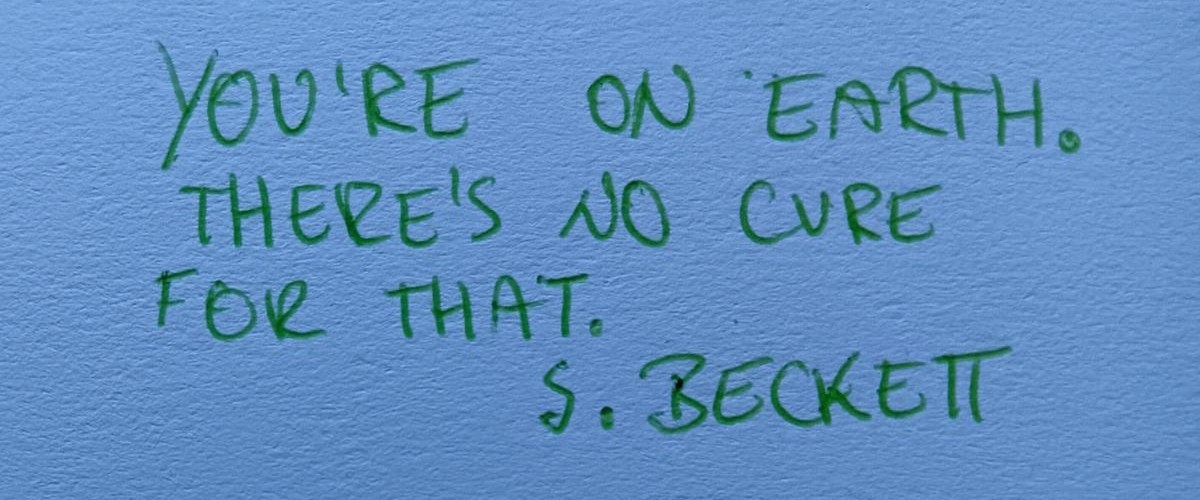 YOU'RE ON EARTH.
THERE'S NO CURE
FOR THAT.
S. BECKETT